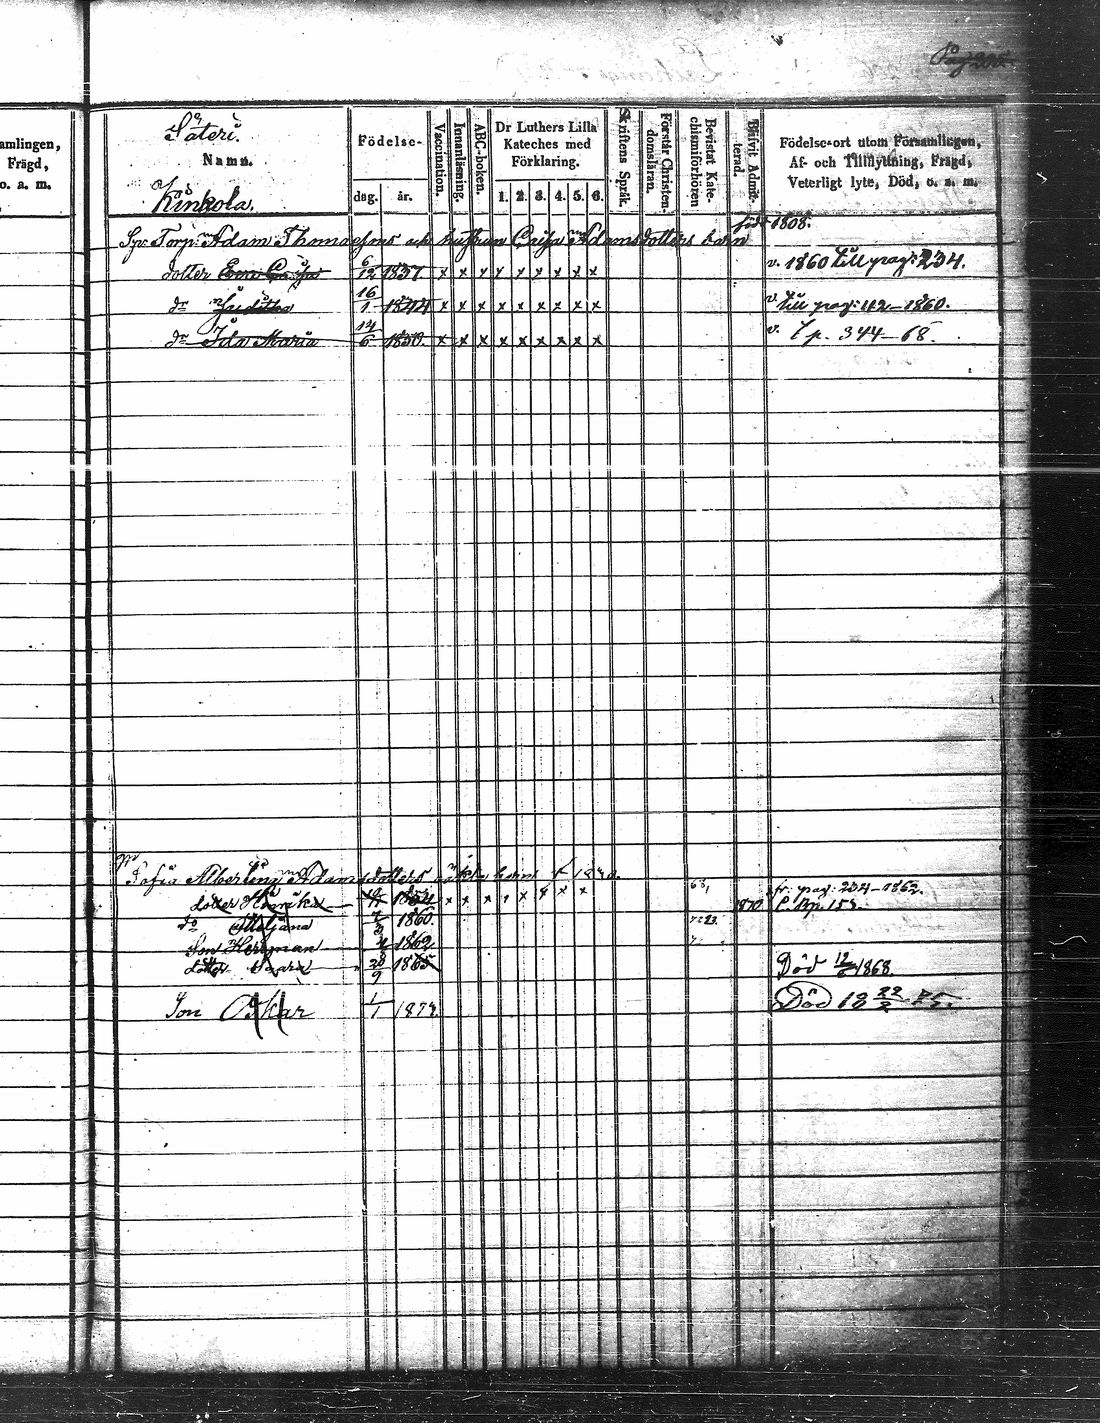 Pag 205.
amlingen,
Frägd,
o. a. m.
Säteri.
Namn.
Kinkola.
Födelse-
dag.
år.
Vaccination.
Innanläsning.
ABC-boken.
Dr Luthers Lilla
Kateches med
Förklaring.
1. 2. 3. 4. 5. 6.
Skriftens Språk.
Förstår Christen-
domsläran.
Bevistat Kate-
chismiförhören
Blifvit Admit-
terad.
Födelse-ort utom Församlingen,
Af- och Tillflyttning, Frägd,
Veterligt lyte, Död, o. a. m.
född 1808.
Torp: Adam Thomaesons och hustrun Caisa Adamsdotters barn
dotter 6/12 1837. x x x x x x x x x v. 1860 till pag: 234.
do 16/1 1844 x x x x x x x x x v. till pag: 42-1860.
do Ida Maria 14/6 1850. x x x x x x x x x v. p. 344-68.
Sofia Albertina Adamsdotters barn
fr. pag: 234-1862.
dotter Henrika 1854 x x x x x x x 1870
do 1860.
Son Herman 1862
dotter 28/9 1865 Död 12/6 1868
Son Oskar 1/1 1872 Död 18 22/2 75.